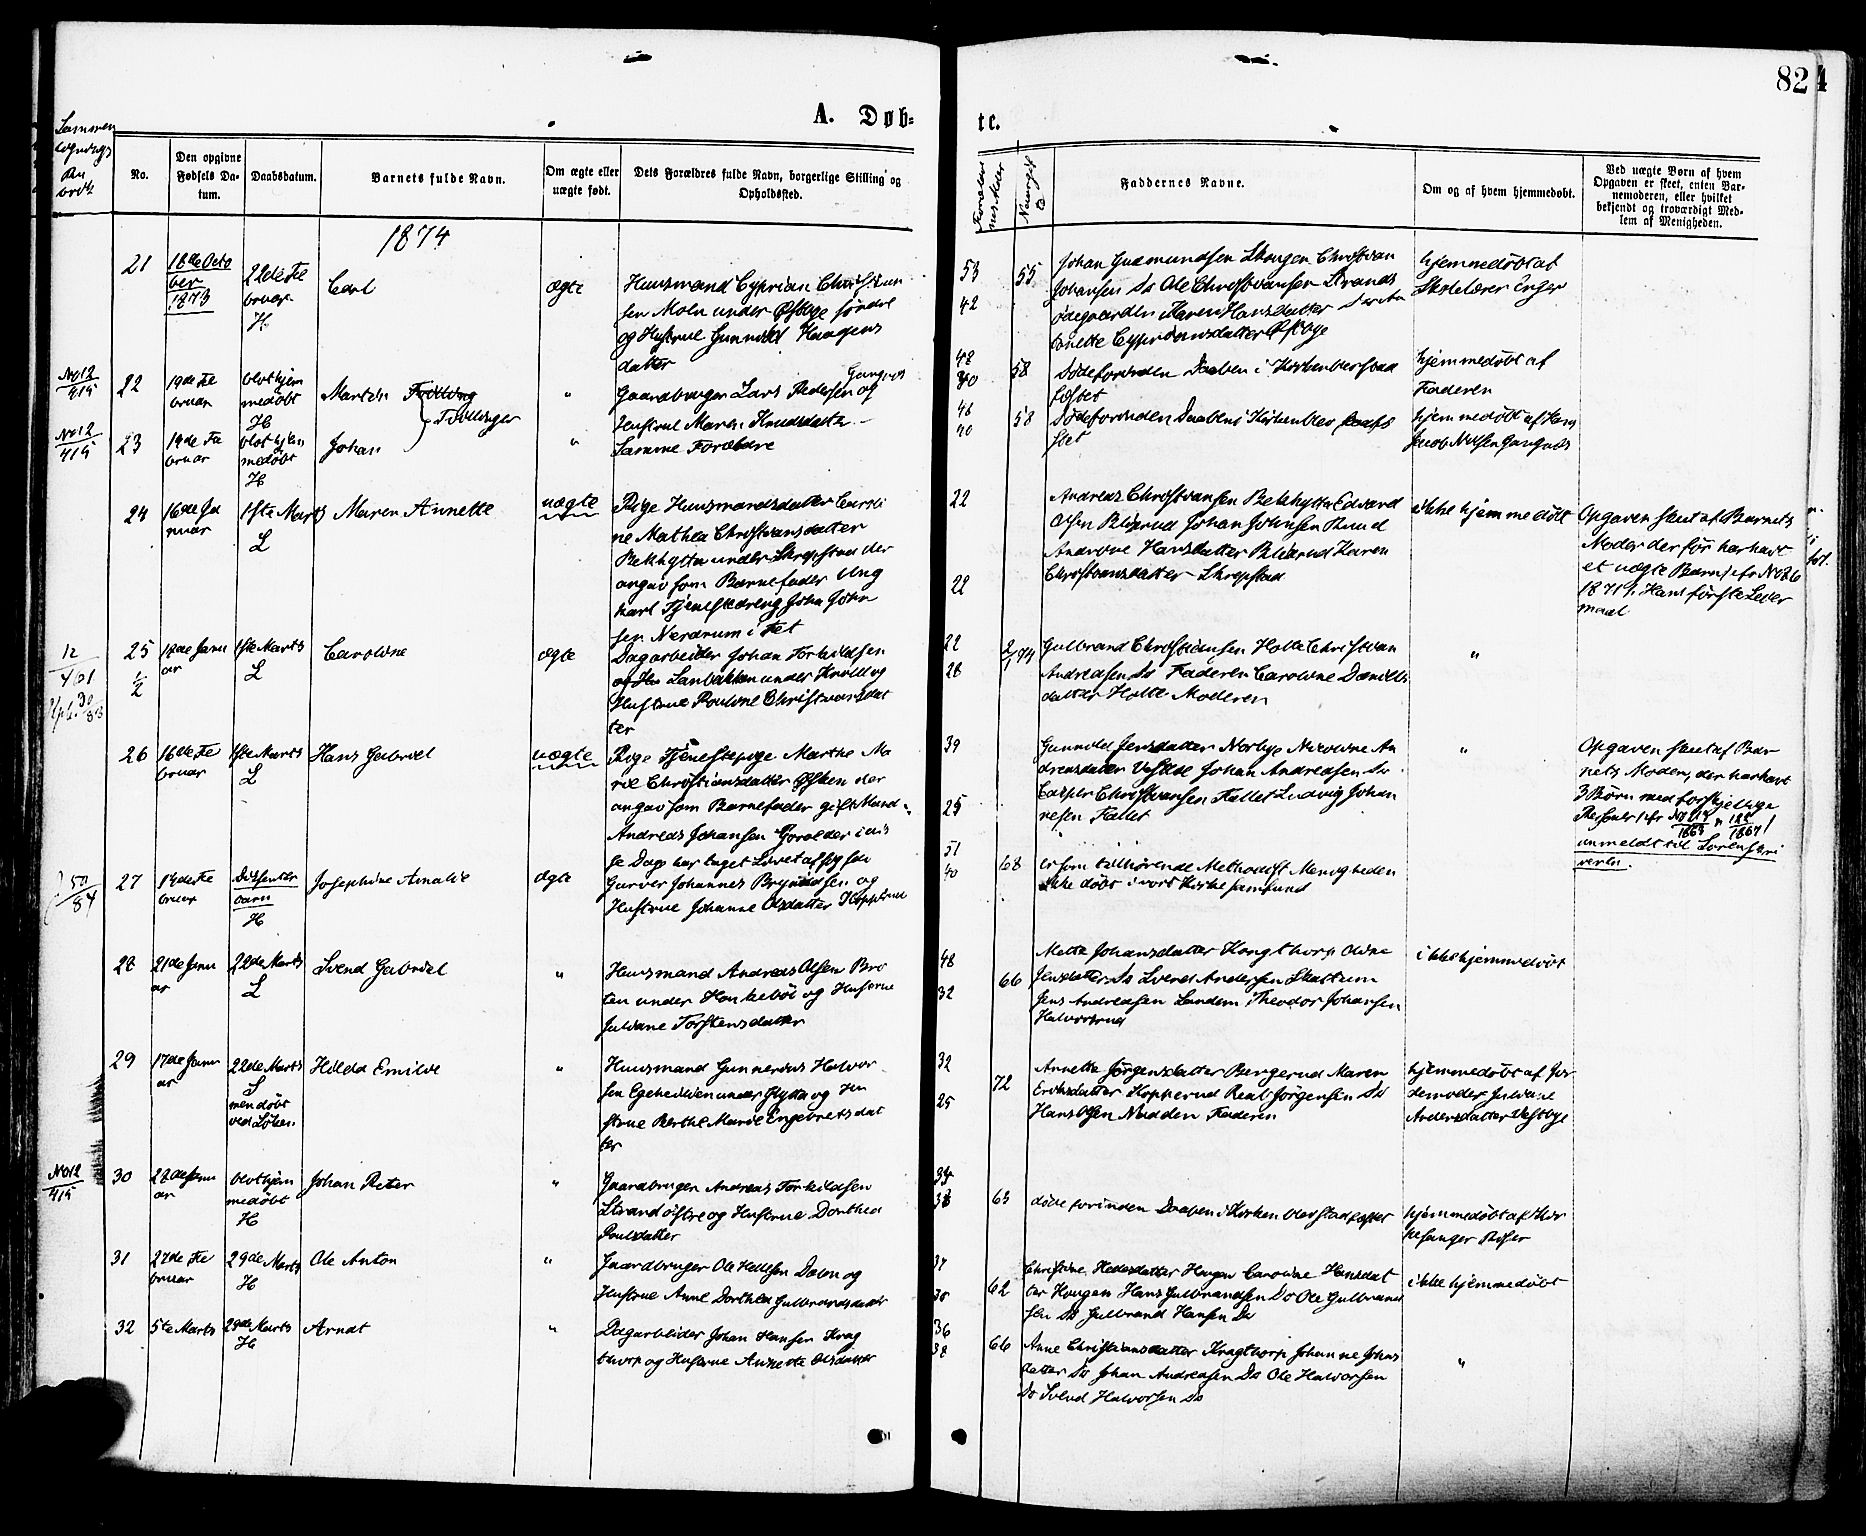 824
A. Døb-
te.
Sammen
No.
Den opgivne
Fødsels Da-
tum.
Daabsdatum.
Barnets fulde Navn.
Om ægte eller
uægte født.
Dets Forældres fulde Navn, borgerlige Stilling og
Opholdssted.
Faddernes Navne.
Om og af hvem hjemmedøbt.
Ved uægte Børn af hvem
Opgaven er skeet, enten Bar-
nemoderen, eller hvilket
bekjendt og troværdigt Med-
lem af Menigheden.
1874
21
18de Octo
ber
1873
22de Fe
bruar
H
Carl
ægte
Huusmand Cyprian Christian
sen Moln under Østbye søndre
og Hustrue Gunnild Haagens
datter
53
42
55
Johan Gudmundsen Skougen Christian
Johansen Do Ole Christiansen Strands
ødegaarden Karen Hansdatter
nette Cypriansdatter Østbye
hjemmedøbt af
Skolelærer Unger
No 12
415
22
19de Fe
bruar
blot hjem
medøbt
H
Martin
Tvillinger
"
Gaardbruger Lars Pedersen og
Hustrue Maren Knudsdatter
48
40
58
Døde forinden Daaben i Kirken
hjemmedøbt af
Faderen
No 12
415
23
19de Fe
bruar
blot hjem
medøbt
H
Johan
"
Samme Forældre
48
40
58
Døde forinden Daaben i Kirken
hjemmedøbt af Hans
Jacob Nilsen
24
16de Ja
nuar
1ste Marts
L
Maren Annette
uægte
Pige Huusmandsdatter Caroli
ne Mathea Christiansdatter
Bekhytta under Skrepstad der
angav som Barnefader Ung
karl Tjenestedreng John John
sen Nerdrum i Fet
22
22
Andreas Christiansen Bekhytta Edvard
Olsen Johan Johnsen Knud
Andrine Hansdatter Karen
Christiansdatter Skrepstad
ikke hjemmedøbt
Opgaven skeet af Barnets
Moder der før har havt
et uægte Barn jefr No 26
1871, Hans første Leier
maal
12
461
25
1/2
18de Janu
ar
1ste Marts
L
Caroline
ægte
Dagarbeider Johan Torkildsen
Lanbakken under Krold og
Hustrue Pouline Christiansdat
ter
22
28
2/1 74
Gulbrand Christiansen Holte Christian
Andreassen Do Faderen Caroline Daniels
datter Holte Moderen
"
26
16de Fe
bruar
1ste Marts
L
Hans Gabriel
uægte
Pige Tjenestepige Marthe Ma
rie Christiansdatter der
angav som Barnefader gift Mand
Andreas Johansen
se Dage har taget
39
25
Gunnild Jensdatter Norbye Nicoline An
dreasdatter Johan Andreasen Do
Casper Christiansen Fallet Ludvig Johan
nesen Fallet
"
Opgaven skeet af Bar
nets Moder, der har havt
3 Børn med forskjellige
anmeldt til Sorenskri
veren.
50
84
27
13de Fe
bruar
Dissenter
barn
H
Josephine Amalie
ægte
Garver Johannes Bryndildsen og
Hustrue Johanne Olsdatter Kopperud
51
40
68
er som tilhørende Methodist Menigheden
ikke døbt i vort Kirkesamfund
28
21de Janu
ar
22de Marts
L
Svend Gabriel
"
Huusmand Andreas Olsen Bra
ten under Haukebøl og Hustrue
Juliane Torstensdatter
48
32
66
Mette Johansdatter Kongthorp Oline
Jensdatter Do Svend Andersen Skattum
Jens Andreasen Sandem Theodor Johansen
Halvorsrud
ikke hjemmedøbt
29
17de Janu
ar
22de Marts
S
men døbt
ved Løken
Hilda Emilie
"
Huusmand Gunnerius Halvor
sen Egehelden under Flytta og Hu
strue Berthe Marie Engebretsdat
ter
32
25
72
Annette Jørgensdatter Bergerud Maren
Eriksdatter Kopperud Jørgensen Do
Hans Olsen Nadden Faderen
hjemmedøbt af Jor
demoder Juliane
Andersdatter Vestbye
No 12
415
30
28de Janu
ar
blot hjem
medøbt
H
Johan Peter
"
Gaardbruger Andreas Torkildsen
Strand østre og Hustrue Dorthea
Poulsdatter
63
døde forinden Daaben i Kirken
hjemmedøbt af Kir
kesanger Riser
31
27de Fe
bruar
29de Marts
H
Ole Anton
"
Gaardbruger Ole Hellesen Dalen og
Hustrue Anne Dorthea Gulbrandsdatter
37
30
62
Christine Pedersdatter Haugen Caroline Hansdat
ter Haugen Hans Gulbrandsen Do Ole Gulbrand
sen Do Gulbrand Hansen Do
ikke hjemmedøbt
32
5te Marts
29de Marts
H
Arndt
"
Dagarbeider Johan Hansen Krag
thorp og Hustrue Annette Olsdatter
36
38
66
Anne Christiansdatter Kragthorp Johanne Johans
datter Do Johan Andreasen Do Ole Halvorsen
Do Svend Halvorsen Do
"